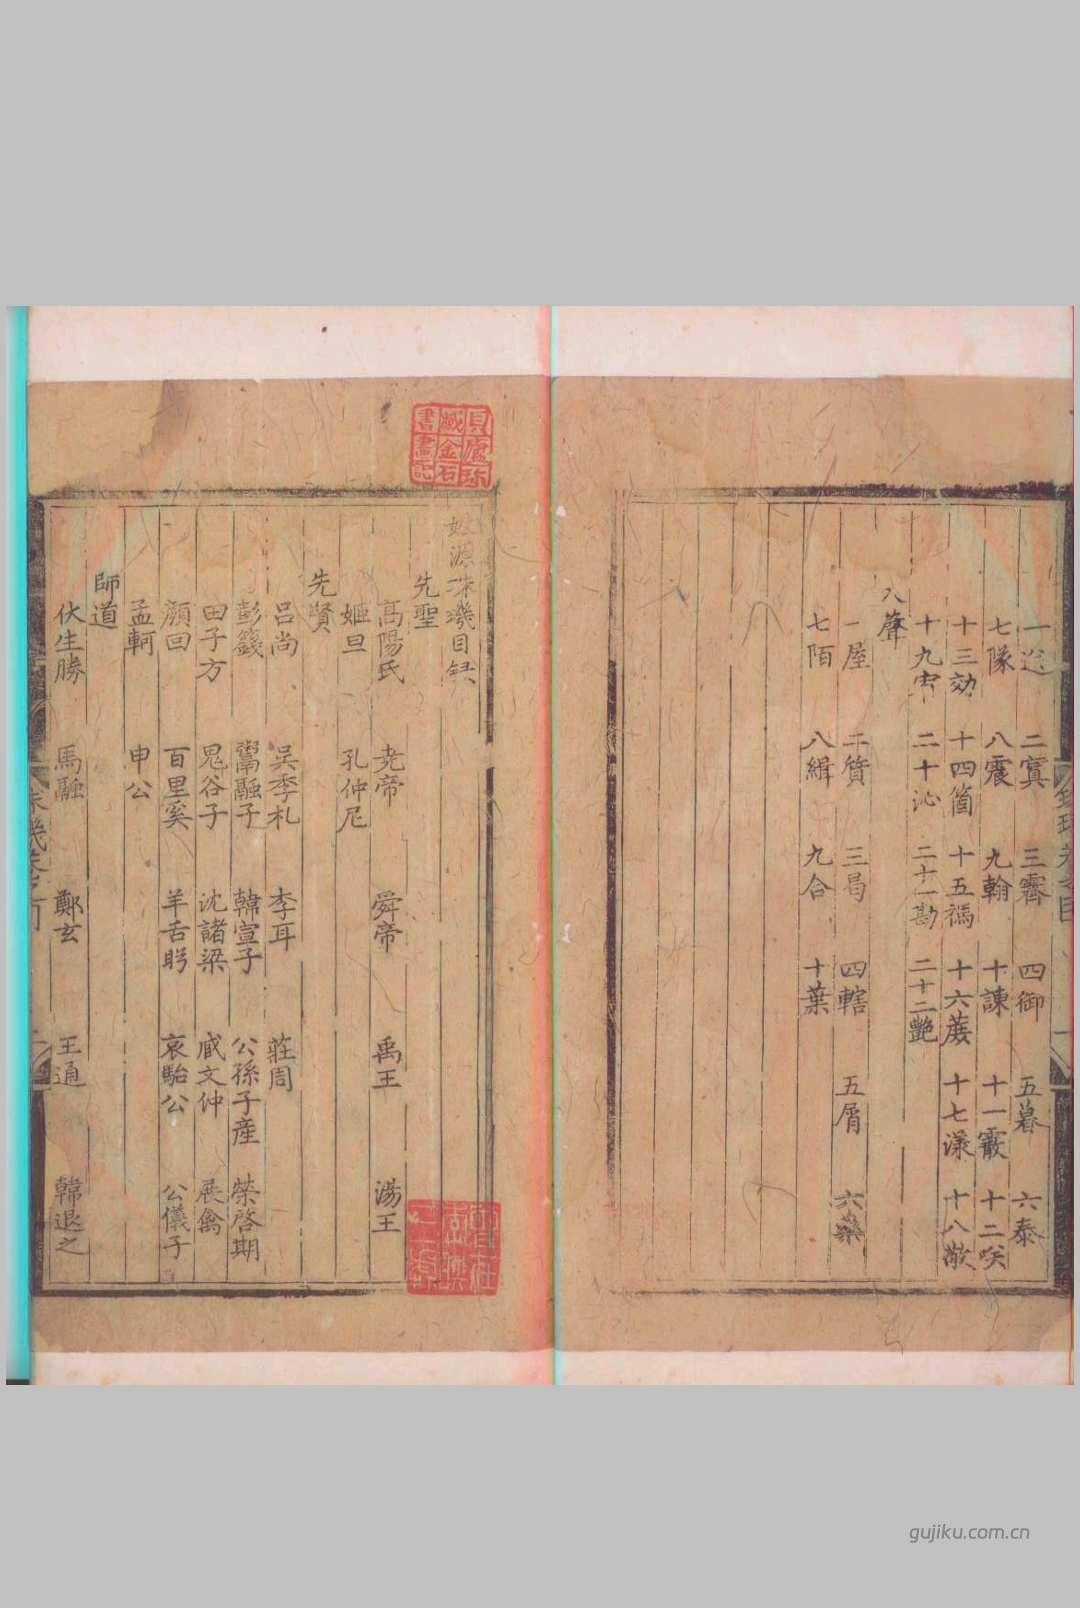 一送 二寘 三霽 四御 五暮 六泰
七隊 八震 九翰 十諫 十一霰 十二咲
十三効 十四箇 十五禡 十六蔆 十七漾 十八敬
十九宥 二十沁 二十一勘 二十二艷
入聲
一屋 二質 三曷 四轄 五屑 六藥
七陌 八緝 九合 十葉
姓源珠璣目錄
先聖
高陽氏 尭帝 舜帝 禹王 湯王
姬旦 孔仲尼
先賢
呂尚 吳季札 李耳 莊周
彭籛 鬻融子 韓宣子 公孫子産 榮啓期
田子方 鬼谷子 沈諸梁 臧文仲 展禽
顏回 百里奚 羊舌肸 哀駘公 公儀子
孟軻 申公
師道
伏生勝 馬融 鄭玄 王通 韓退之
珠璣卷之
貝廬珎
藏金石
書畫記
gujiku.com.cn